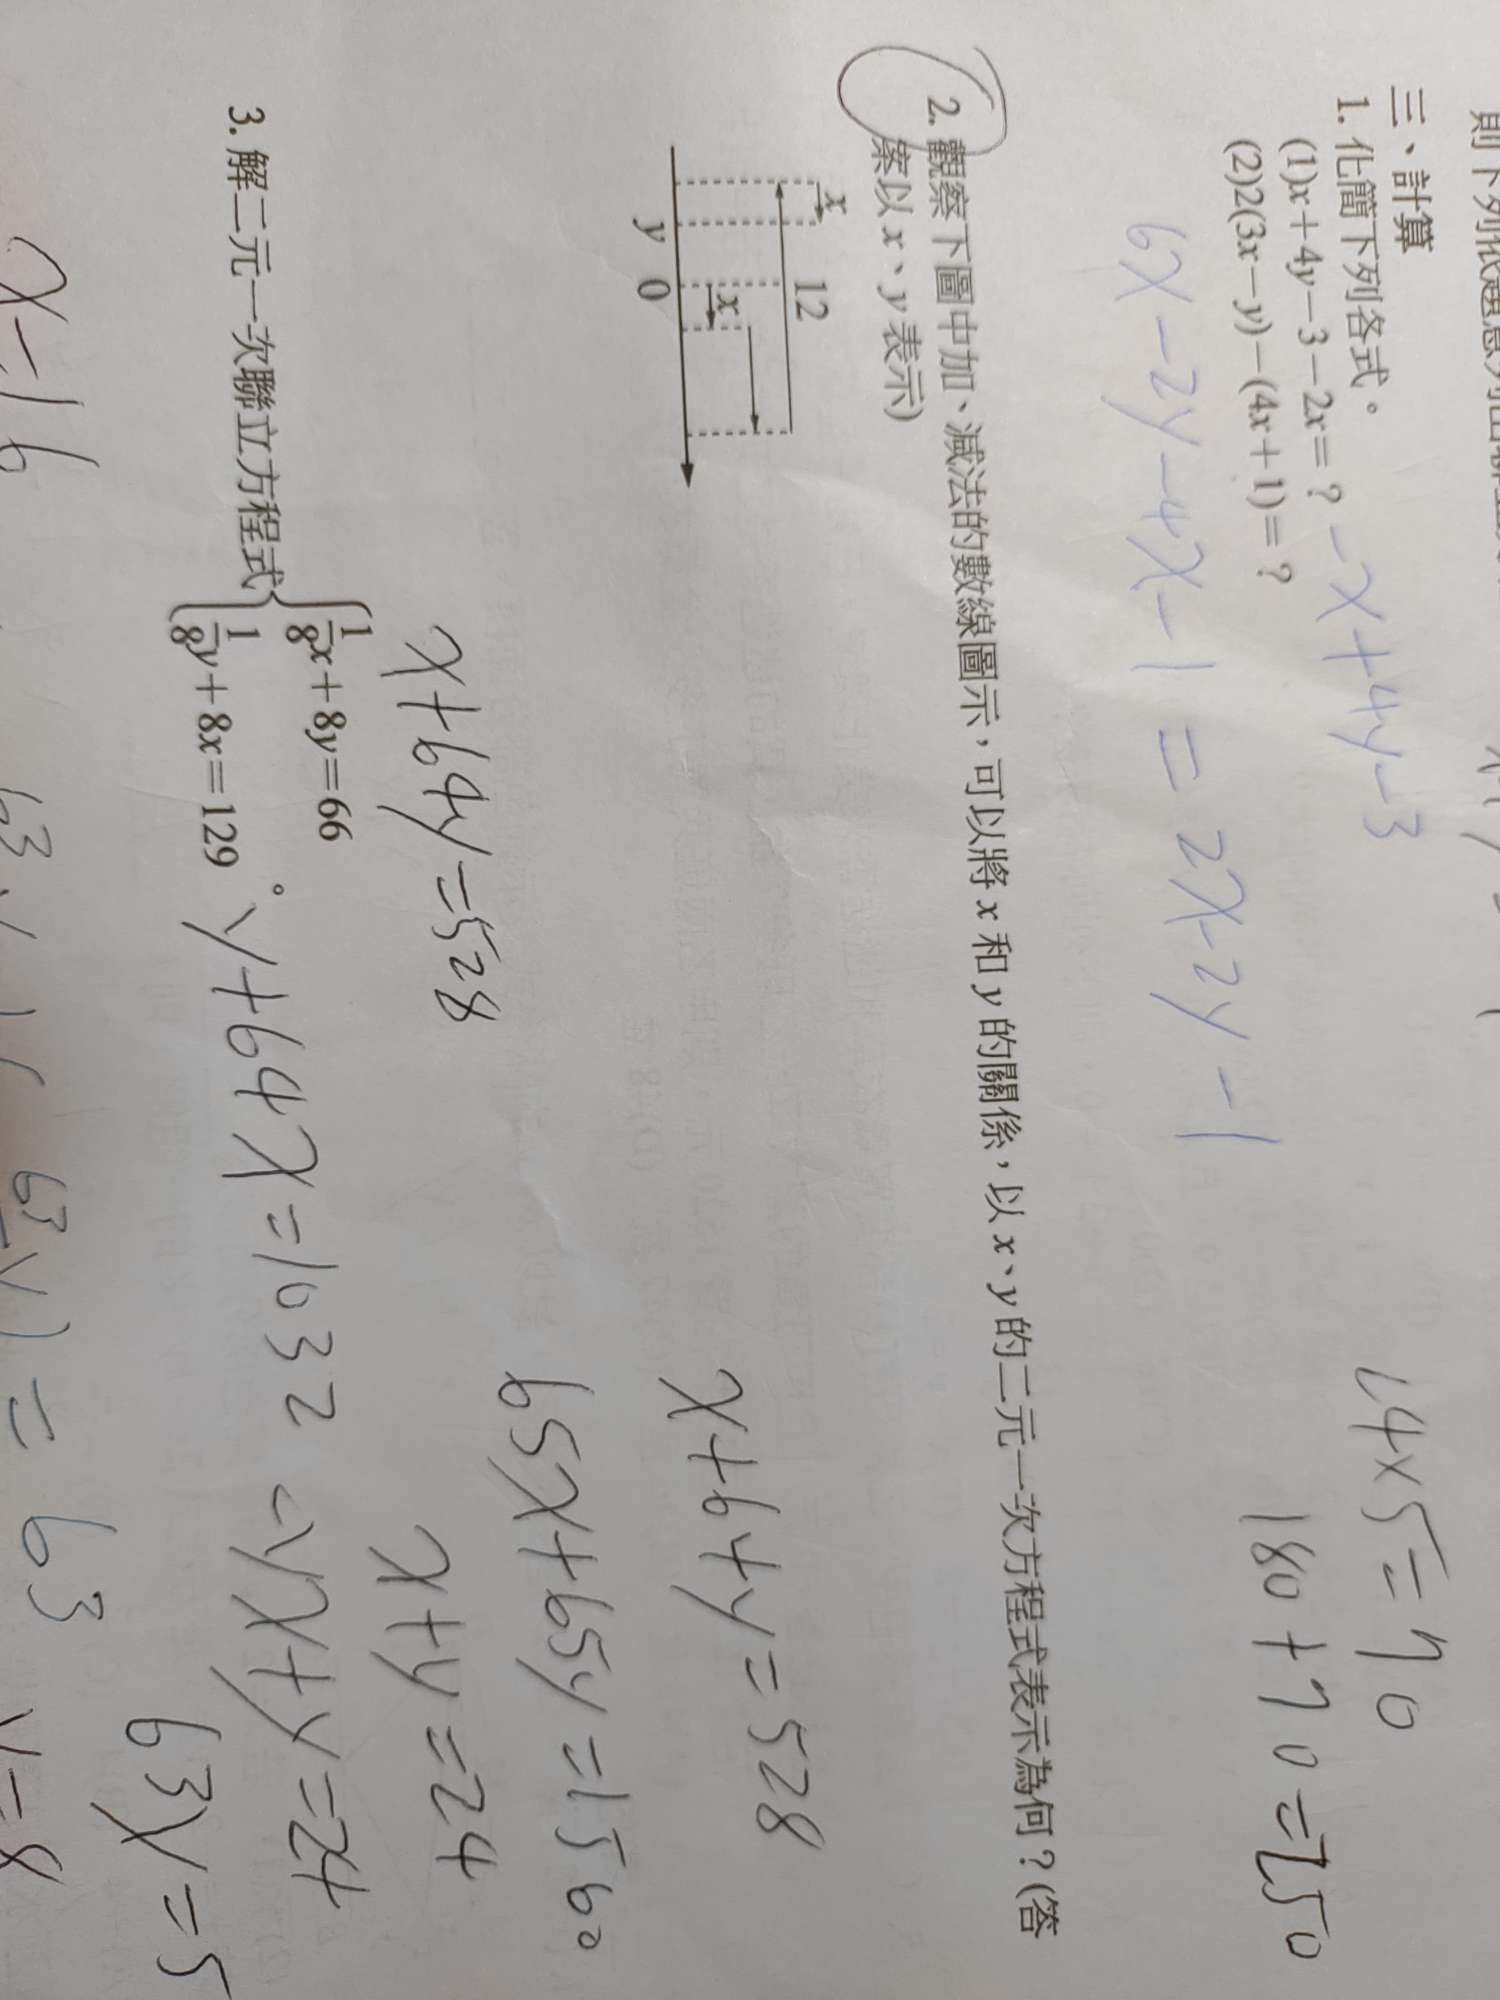 三、計算
1. 化簡下列各式。
(1)x+4y-3-2x=? -x+4y-3
(2)2(3x-y)-(4x+1)=?
6x-2y-4x-1=2x-2y-1
14×5=70
180+70=250
2. 觀察下圖中加、減法的數線圖示，可以將 x 和 y 的關係，以 x、y 的二元一次方程式表示為何？(答
案以 x、y 表示)
x
12
x
y 0
x+64y=528
65x+65y=1560
x+y=24
x+64y=528
3. 解二元一次聯立方程式{
1/8x+8y=66
1/8y+8x=129
。
y+64x=1032
x+y=24
63y=5
x=16
63
y=8